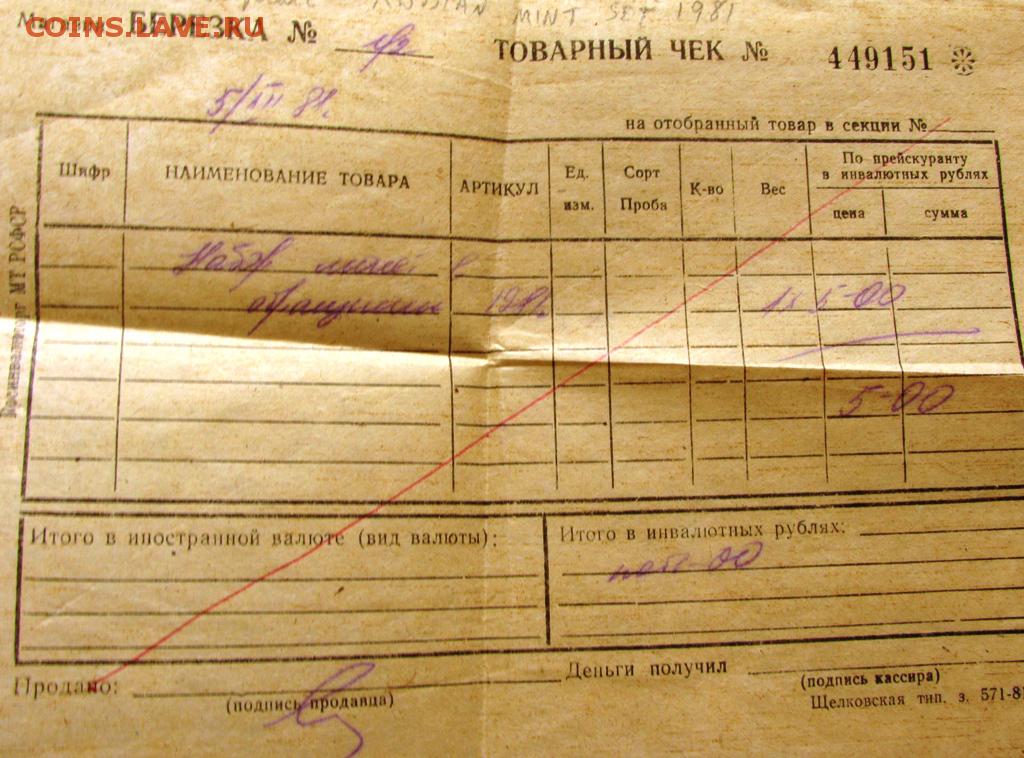 RUSSIAN MINT SET 1981
COINS.LAVE.RU
Магазин БЕРЕЗКА №
ТОВАРНЫЙ ЧЕК № 449151
5/III 81.
на отобранный товар в секции №
Шифр
НАИМЕНОВАНИЕ ТОВАРА
АРТИКУЛ
Ед. изм.
Сорт Проба
К-во
Вес
По прейскуранту в инвалютных рублях
цена
сумма
Набор монет в
обращении 1981. 1x 5-00
5-00
Итого в иностранной валюте (вид валюты):
Итого в инвалютных рублях:
Продано:
(подпись продавца)
Деньги получил
(подпись кассира)
Щелковская тип. з. 571-8
МТ РСФСР